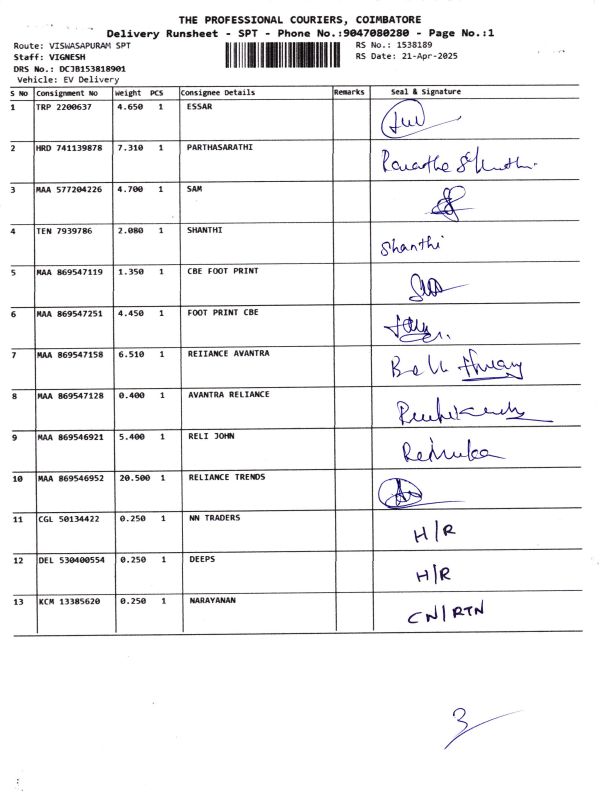 THE PROFESSIONAL COURIERS, COIMBATORE
Delivery Runsheet - SPT - Phone No.:9047080280 - Page No.:1
Route: VISWASAPURAM SPT RS No.: 1538189
Staff: VIGNESH RS Date: 21-Apr-2025
DRS No.: DCJB153818901
Vehicle: EV Delivery
S No Consignment No Weight PCS Consignee Details Remarks Seal & Signature
1 TRP 2200637 4.650 1 ESSAR
2 HRD 741139878 7.310 1 PARTHASARATHI
3 MAA 577204226 4.700 1 SAM
4 TEN 7939786 2.080 1 SHANTHI Shanthi
5 MAA 869547119 1.350 1 CBE FOOT PRINT
6 MAA 869547251 4.450 1 FOOT PRINT CBE
7 MAA 869547158 6.510 1 REIIANCE AVANTRA
8 MAA 869547128 0.400 1 AVANTRA RELIANCE
9 MAA 869546921 5.400 1 RELI JOHN
10 MAA 869546952 20.500 1 RELIANCE TRENDS
11 CGL 50134422 0.250 1 NN TRADERS H/R
12 DEL 530400554 0.250 1 DEEPS H/R
13 KCM 13385620 0.250 1 NARAYANAN CN/RTN
3